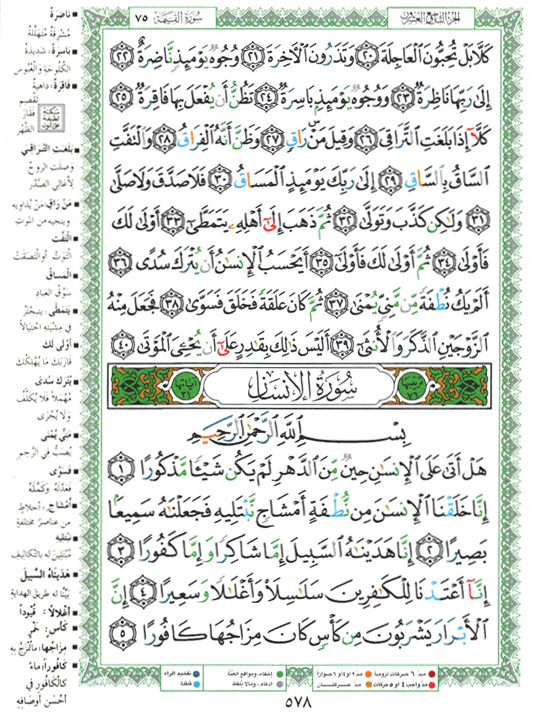 الجزء التاسع والعشرون
سُورَةُ القِيَامَةِ ٧٥
كَلَّا بَلْ تُحِبُّونَ ٱلْعَاجِلَةَ ٢٠ وَتَذَرُونَ ٱلْأَخِرَةَ ٢١ وُجُوهٌ يَوْمَئِذٍ نَّاضِرَةٌ ٢٢
إِلَىٰ رَبِّهَا نَاظِرَةٌ ٢٣ وَوُجُوهٌ يَوْمَئِذٍۭ بَاسِرَةٌ ٢٤ تَظُنُّ أَن يُفْعَلَ بِهَا فَاقِرَةٌ ٢٥
كَلَّآ إِذَا بَلَغَتِ ٱلتَّرَاقِىَ ٢٦ وَقِيلَ مَنْ رَاقٍ ٢٧ وَظَنَّ أَنَّهُ ٱلْفِرَاقُ ٢٨ وَٱلْتَفَّتِ
ٱلسَّاقُ بِٱلسَّاقِ ٢٩ إِلَىٰ رَبِّكَ يَوْمَئِذٍ ٱلْمَسَاقُ ٣٠ فَلَا صَدَّقَ وَلَا صَلَّىٰ
٣١ وَلَٰكِن كَذَّبَ وَتَوَلَّىٰ ٣٢ ثُمَّ ذَهَبَ إِلَىٰٓ أَهْلِهِۦ يَتَمَطَّىٰٓ ٣٣ أَوْلَىٰ لَكَ
فَأَوْلَىٰ ٣٤ ثُمَّ أَوْلَىٰ لَكَ فَأَوْلَىٰٓ ٣٥ أَيَحْسَبُ ٱلْإِنسَٰنُ أَن يُتْرَكَ سُدًى ٣٦
أَلَمْ يَكُ نُطْفَةً مِّن مَّنِىٍّ يُمْنَىٰ ٣٧ ثُمَّ كَانَ عَلَقَةً فَخَلَقَ فَسَوَّىٰ ٣٨ فَجَعَلَ مِنْهُ
ٱلزَّوْجَيْنِ ٱلذَّكَرَ وَٱلْأُنثَىٰٓ ٣٩ أَلَيْسَ ذَٰلِكَ بِقَٰدِرٍ عَلَىٰٓ أَن يُحْـِۧىَ ٱلْمَوْتَىٰ ٤٠
ترتيبها ٧٦ سُورَةُ الإِنسَانِ آياتها ٣١
بِسْمِ ٱللَّهِ ٱلرَّحْمَٰنِ ٱلرَّحِيمِ
هَلْ أَتَىٰ عَلَى ٱلْإِنسَٰنِ حِينٌ مِّنَ ٱلدَّهْرِ لَمْ يَكُن شَيْـًٔا مَّذْكُورًا ١
إِنَّا خَلَقْنَا ٱلْإِنسَٰنَ مِن نُّطْفَةٍ أَمْشَاجٍ نَّبْتَلِيهِ فَجَعَلْنَٰهُ سَمِيعًۢا
بَصِيرًا ٢ إِنَّا هَدَيْنَٰهُ ٱلسَّبِيلَ إِمَّا شَاكِرًا وَإِمَّا كَفُورًا ٣
إِنَّآ أَعْتَدْنَا لِلْكَٰفِرِينَ سَلَٰسِلَا۟ وَأَغْلَٰلًا وَسَعِيرًا ٤ إِنَّ
ٱلْأَبْرَارَ يَشْرَبُونَ مِن كَأْسٍ كَانَ مِزَاجُهَا كَافُورًا ٥
ناضِرَة
مُشْرِقَةٌ مُتَهَلِّلَةٌ
باسِرَة: شَدِيدَةُ
الكُلُوحَةِ والعُبُوسِ
فاقِرَة: داهِيةٌ
تَقْصِمُ
فَقَارَ
الظَّهْرِ
بَلَغَت التَّراقيَ
وصَلَت الروحُ
لأعالي الصَّدْرِ
مَنْ راقٍ: مَنْ يُداويه
ويُنجيه من الموتِ
الْتَفَّت
الْتَوَتْ أو الْتَصَقَتْ
المَساق
سَوْقُ العبادِ
يتمَطَّى: يَتَبَخْتَرُ
في مِشْيَتِهِ اخْتِيالاً
أوْلى لك
قارَبَكَ ما يُهْلِكُكَ
يُتْرَكَ سُدًى
مُهْمَلاً فلا يُكَلَّفُ
ولا يُجْزَى
مَنِيٍّ يُمْنَى
يُصَبُّ في الرَّحِمِ
فَسَوَّى
فعدَّلَهُ وكَمَّلَهُ
أمْشاجٍ: أخْلاطٍ
من عناصِرَ مختلفةٍ
نبتَليهِ
مُبْتَلِينَ له بالتكاليفِ
هَدَيْناهُ السبيلَ
بَيَّنَّا له طريقَ الهدايةِ
أغْلالاً: قُيُوداً
كَأسٍ: خَمْرٍ
مِزاجُها: ما تُمْزَجُ به
كافوراً: ماءً
كالكافُورِ في
أحْسَنِ أوصافِهِ
مدّ ٦ حركات لزوماً مدّ ٢ أو ٤ أو ٦ جوازاً إخفاء، ومواقع الغُنَّة تفخيم الراء
مدّ واجب ٤ أو ٥ حركات مدّ حركتان إدغام، وما لا يُلفَظ قلقلة
٥٧٨